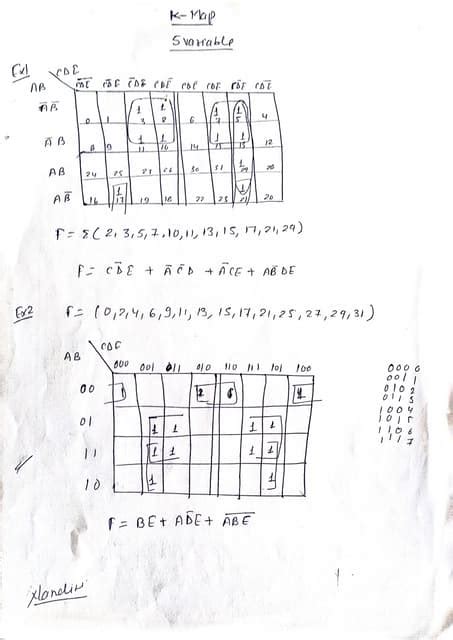 K-Map
5 variable
Ex1
CDE
AB C̅D̅E̅ C̅D̅E C̅DE C̅DE̅ CDE̅ CDE CD̅E CD̅E̅
A̅B̅ 0 1 1 3 1 2 6 1 7 1 5 4
A̅B 8 9 1 11 1 10 14 1 15 1 13 12
AB 24 25 27 26 30 31 1 29 28
AB̅ 16 1 17 19 18 22 23 1 21 20
F = Σ(2,3,5,7,10,11,13,15,17,21,29)
F = CD̅E + A̅C̅D + A̅CE + AB̅D̅E
Ex2 F = (0,2,4,6,9,11,13,15,17,21,25,27,29,31)
CDE
AB 000 001 011 010 110 111 101 100
00 1 1 1
01 1 1 1 1
11 1 1 1 1
10 1 1
0000
0011
0102
0113
1004
1015
1106
1117
F = BE + AD̅E + A̅B̅E̅